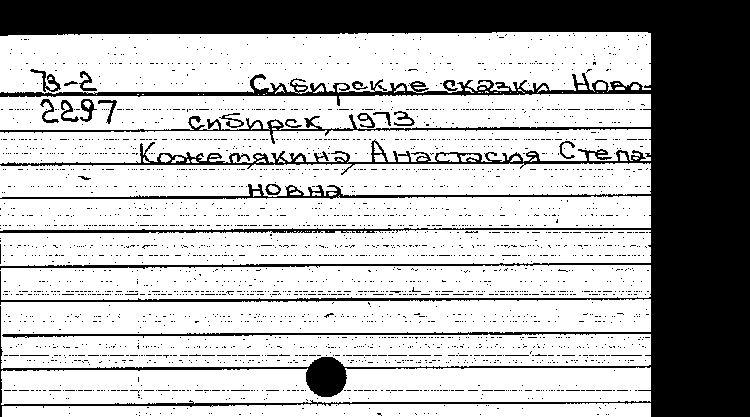 73-2 Сибирские сказки Ново-
2297 сибирск, 1973.
Кожемякина, Анастасия Степа-
новна